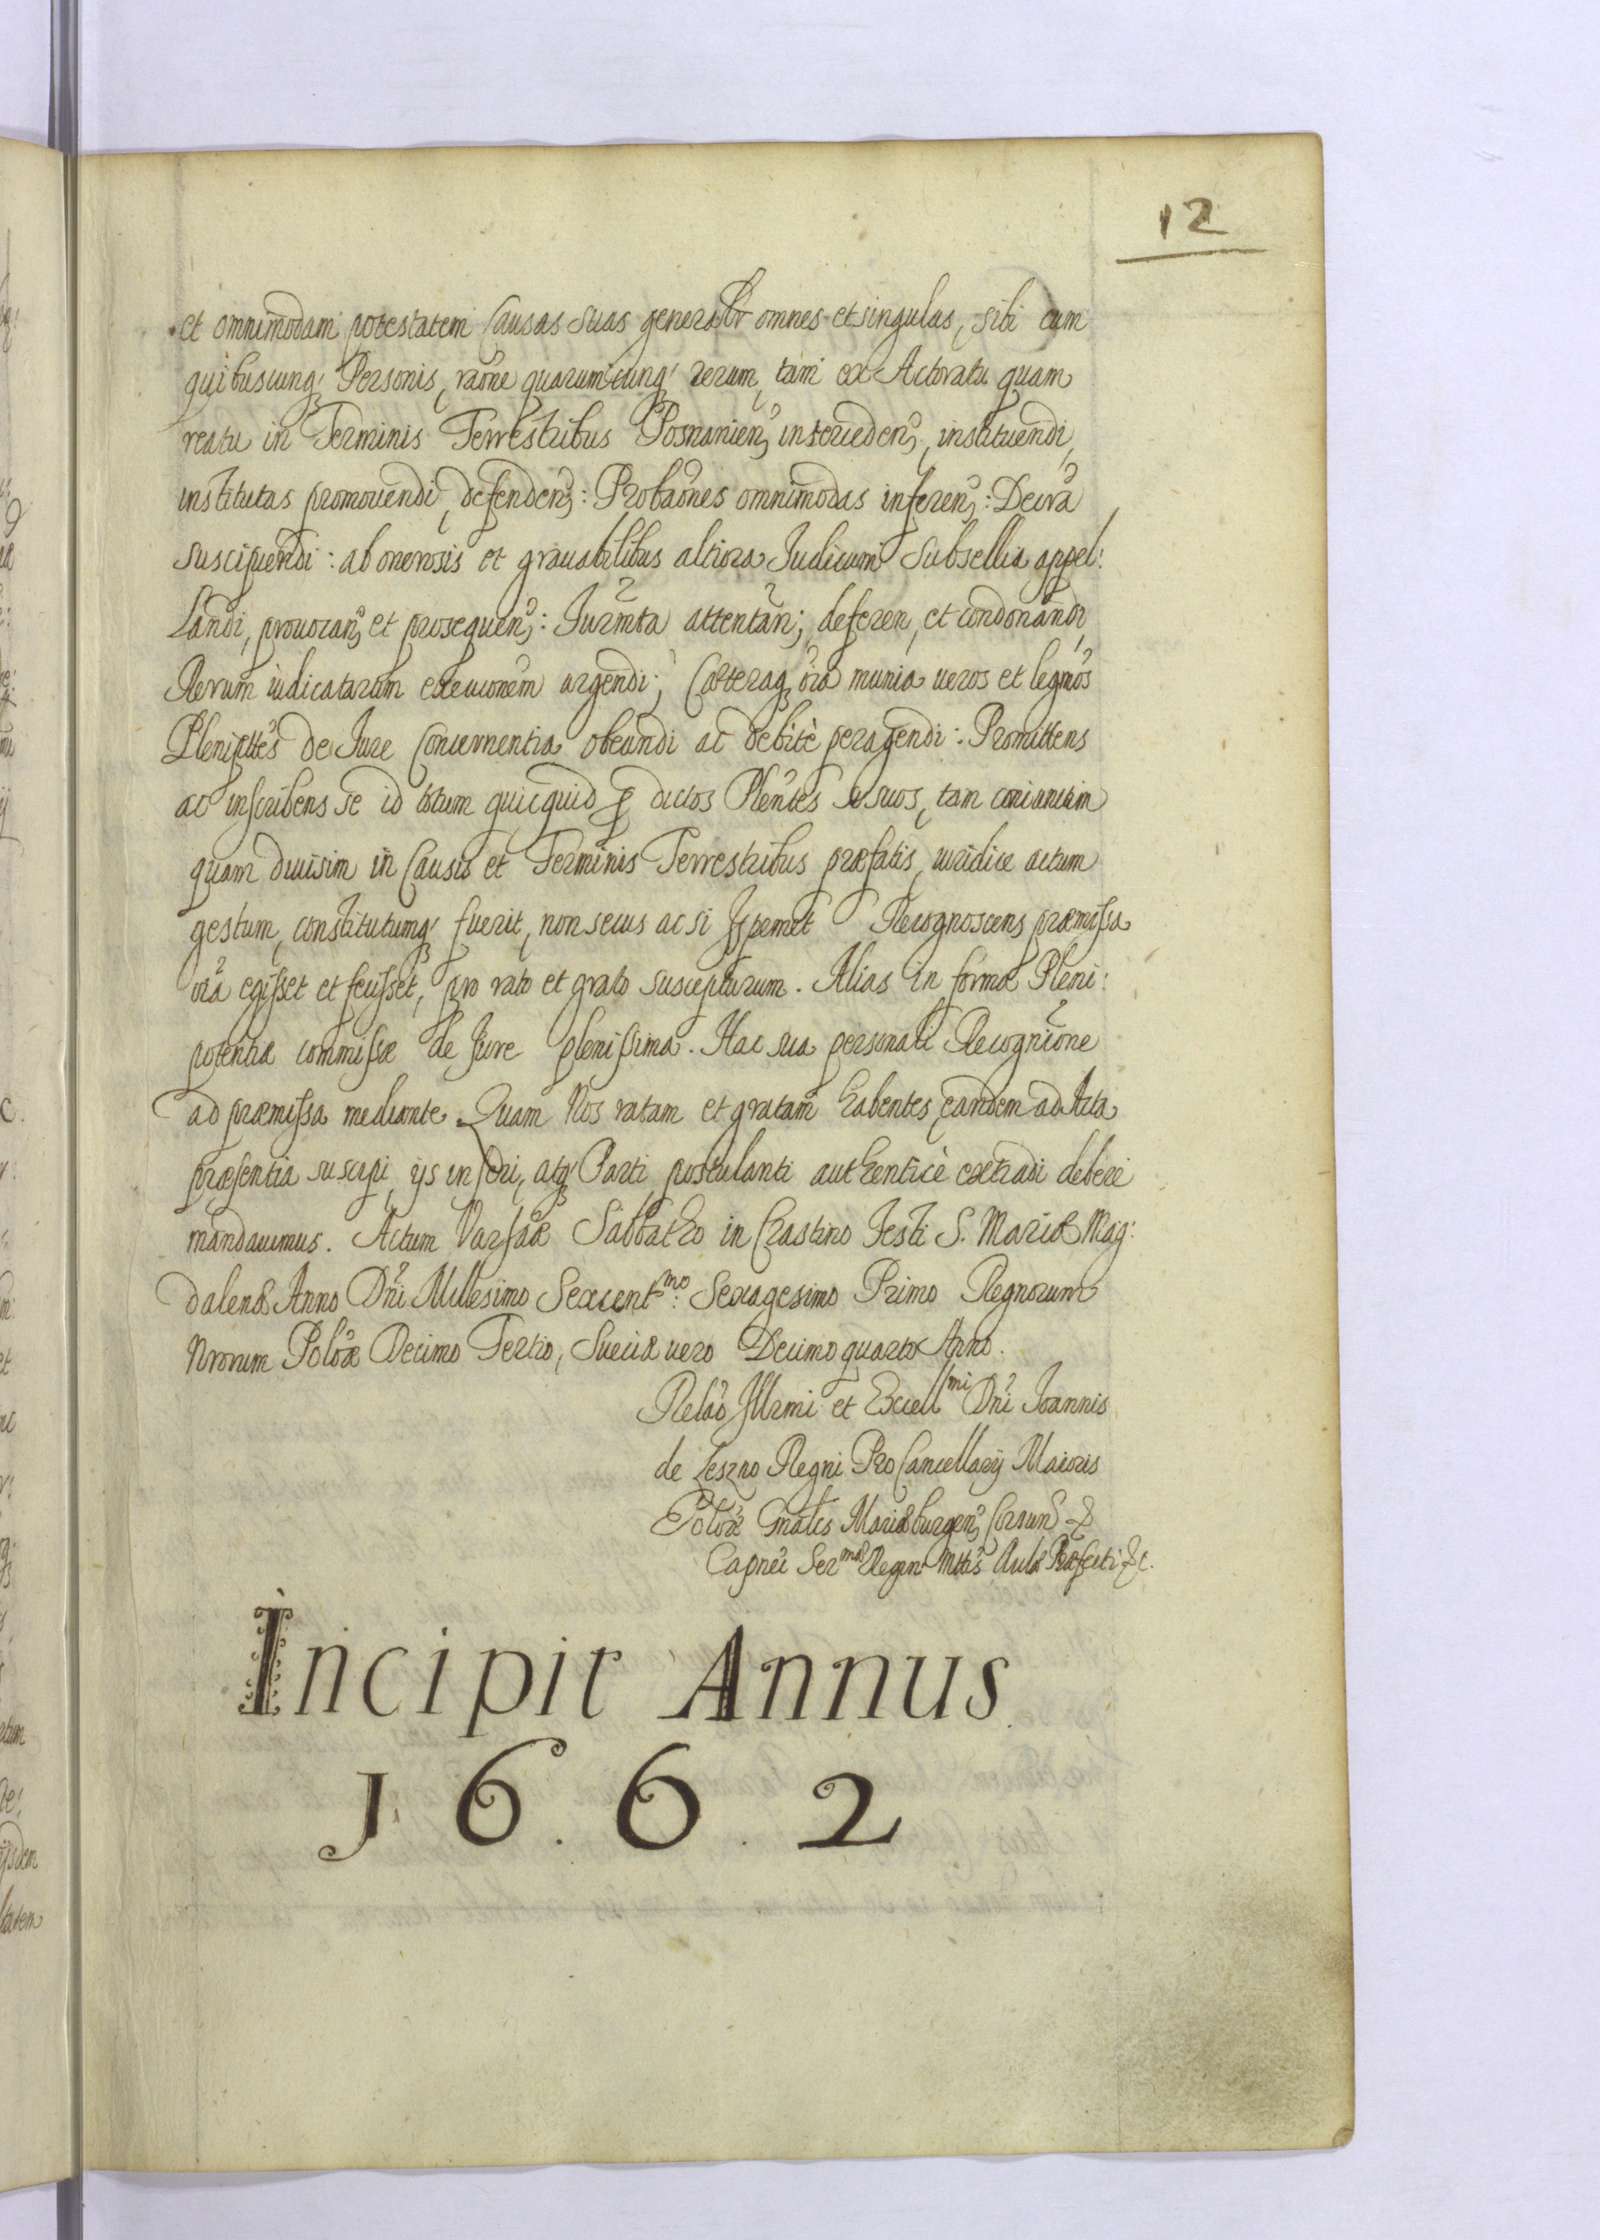 12
et omnimodam potestatem Causas suas generalr omnes et singulas, sibi cum
quibuscunq; Personis, raone quarumcunq; rerum, tam ex Actoratu quam
reatu in Terminis Terrestribus Posnanien, intercedend, instituendi,
institutas promovendi, defenden: Probaones omnimodas inferen: Decra
suscipiendi: ab onerosis et gravabilibus altiora Iudicium Subsellia appel:
landi, provocan, et prosequen: Iurmta attentan; deferen, et condonandi,
Rerum iudicatarum execuonem urgendi; Caeteraq oia munia veros et legmos
Plenipttes de Iure Concernentia obeundi ac debitè peragendi: Promittens
ac inscribens se id totum quicquid p dictos Plentes suos, tam coniunctim
quam divisim in Causis et Terminis Terrestribus praefatis, iuridice actum
gestum, constitutumq; fuerit, non secus ac si Ipsemet Recognoscens praemissa
oia egisset et fecisset, pro rato et grato suscepturum. Alias in forma Pleni:
potentiae commissae de Iure plenissima. Hac sua personali Recognitione
ad praemissa mediante. Quam Nos ratam et gratam habentes, eandem ad Acta
praesentia suscipi, ijs inseri, atq; Parti postulanti authenticè extradi debere
mandavimus. Actum Varsaae Sabbatho in Crastino Festi S. Mariae Mag:
dalenae Anno Dni Millesimo Sexcentmo: Sexagesimo Primo Regnorum
Nrorum Poloae Decimo Tertio, Sueciae vero Decimo quarto Anno.
Relao Illrmi et Excellmi Dni Ioannis
de Leszno Regni Pro Cancellarij Maioris
Poloae Gnalis Mariaeburgen, Corsun &
Capnei Sermae Regin Mttis Aulae Praefecti &c.
Incipit Annus
1.6.6.2